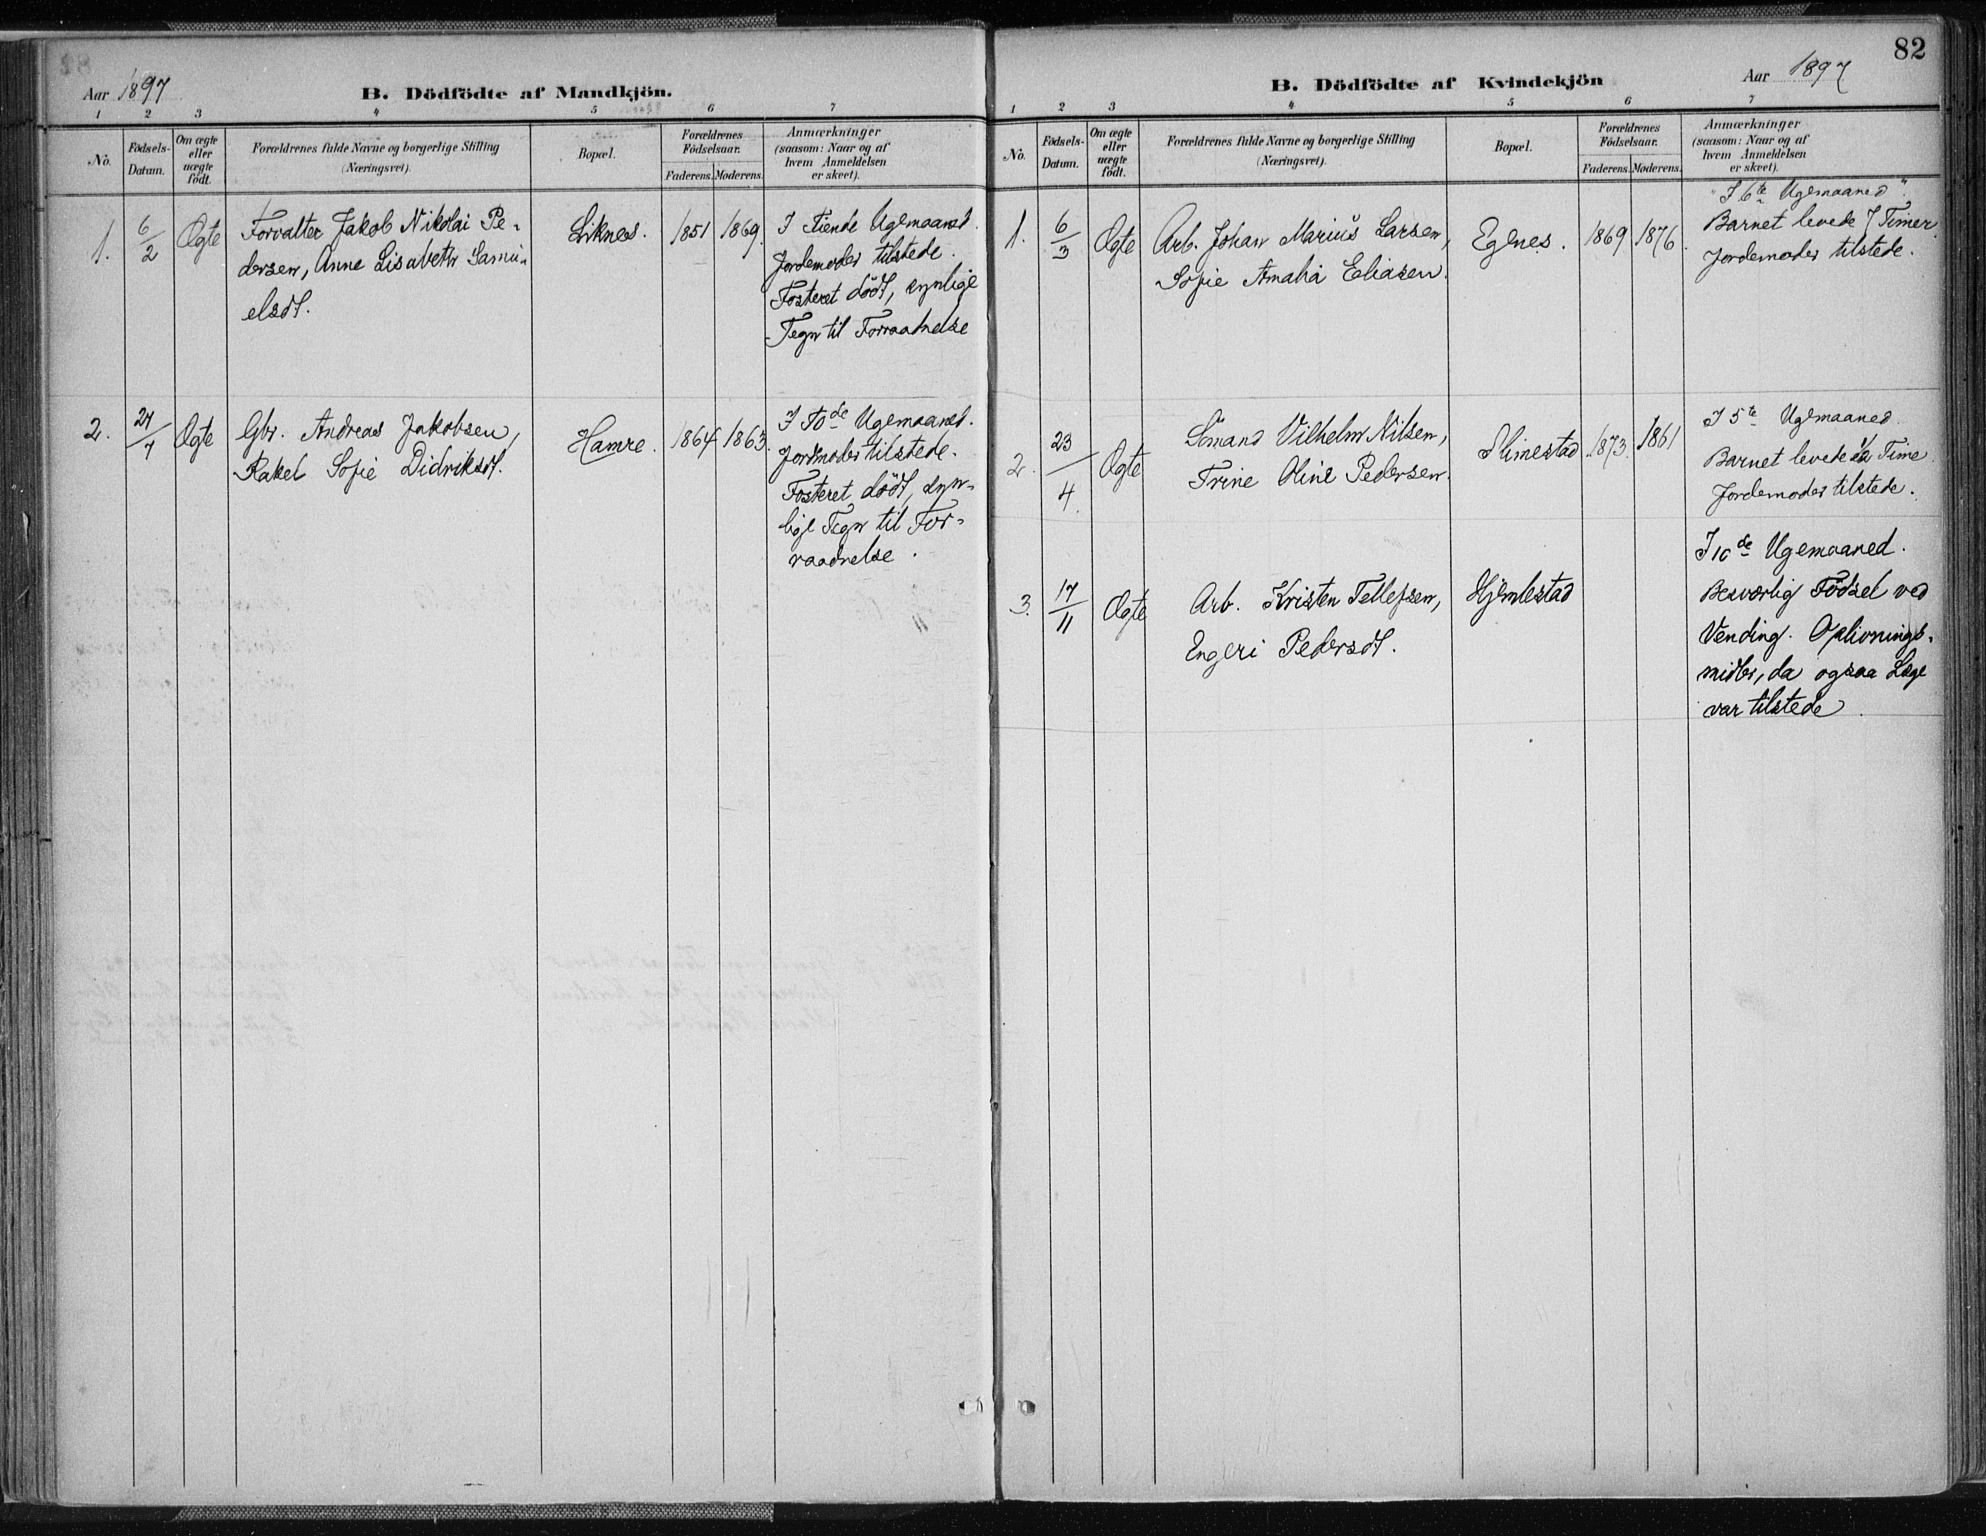 Aar 1897
B. Dödfödte af Mandkjön.
1 2 3 4 5 6 7
No. Födsels-Datum. Om ægte eller uægte født. Forældrenes fulde Navne og borgerlige Stilling (Næringsvei). Bopæl. Forældrenes Födselsaar. Faderens. Moderens. Anmærkninger (saasom: Naar og af hvem Anmeldelsen er skeet).
1. 6/2 Ægte Forvalter Jakob Nikolai Pe- Liknes. 1851 1869. I Tiende Ugemaaned.
dersen, Anne Lisabeth Samu- Jordemoder tilstede.
elsdt. Fosteret dödt, synlige
Tegn til Forraadnelse
2. 27/7 Ægte Gbr. Andreas Jakobsen, Hamre. 1864 1863. I 10de Ugemaaned.
Rakel Sofie Didriksdt. Jordmoder tilstede.
Fosteret dödt, syn-
lige Tegn til For-
raadnelse.
82
Aar 1897
B. Dödfödte af Kvindekjön
1 2 3 4 5 6 7
No. Födsels-Datum. Om ægte eller uægte födt. Forældrenes fulde Navne og borgerlige Stilling (Næringsvei). Bopæl. Forældrenes Födselsaar. Faderens. Moderens. Anmærkninger (saasom: Naar og af hvem Anmeldelsen er skeet).
"I 6te Ugemaaned".
1. 6/3 Ægte Arb. Johan Marius Larsen, Egenes. 1869 1876. Barnet levede 7 Timer.
Sofie Amalia Eliasen. Jordemoder tilstede.
I 5te Ugemaaned.
2. 23/4 Ægte Sömand Vilhelm Nilsen, Slimestad 1873. 1861 Barnet levede 1/2 Time
Trine Oline Pedersen. Jordemoder tilstede.
I 10de Ugemaaned.
3. 17/11 Ægte Arb. Kristen Tellefsen, Hjemlestad Besværlig Födsel ved
Engeri Pedersdt. Vending. Oplivnings-
midler, da ogsaa Læge
var tilstede.